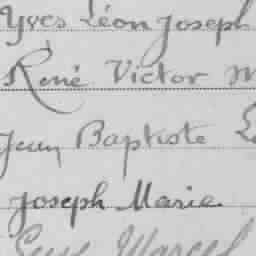 Yves Léon Joseph
René Victor M
Jean Baptiste L
Joseph Marie
Marcel